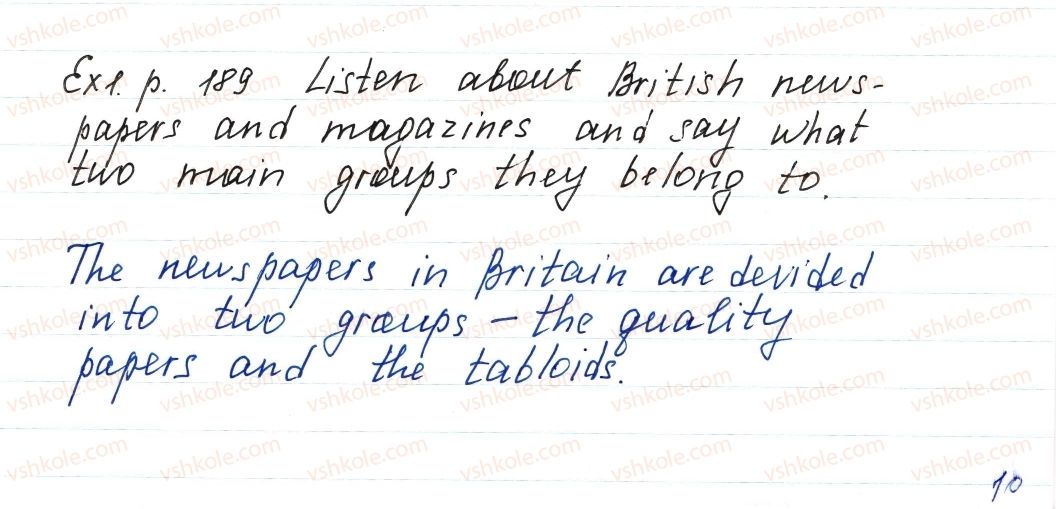 Ex1. p. 189 Listen about British news-
papers and magazines and say what
two main groups they belong to.
The newspapers in Britain are devided
into two groups – the quality
papers and the tabloids.
10